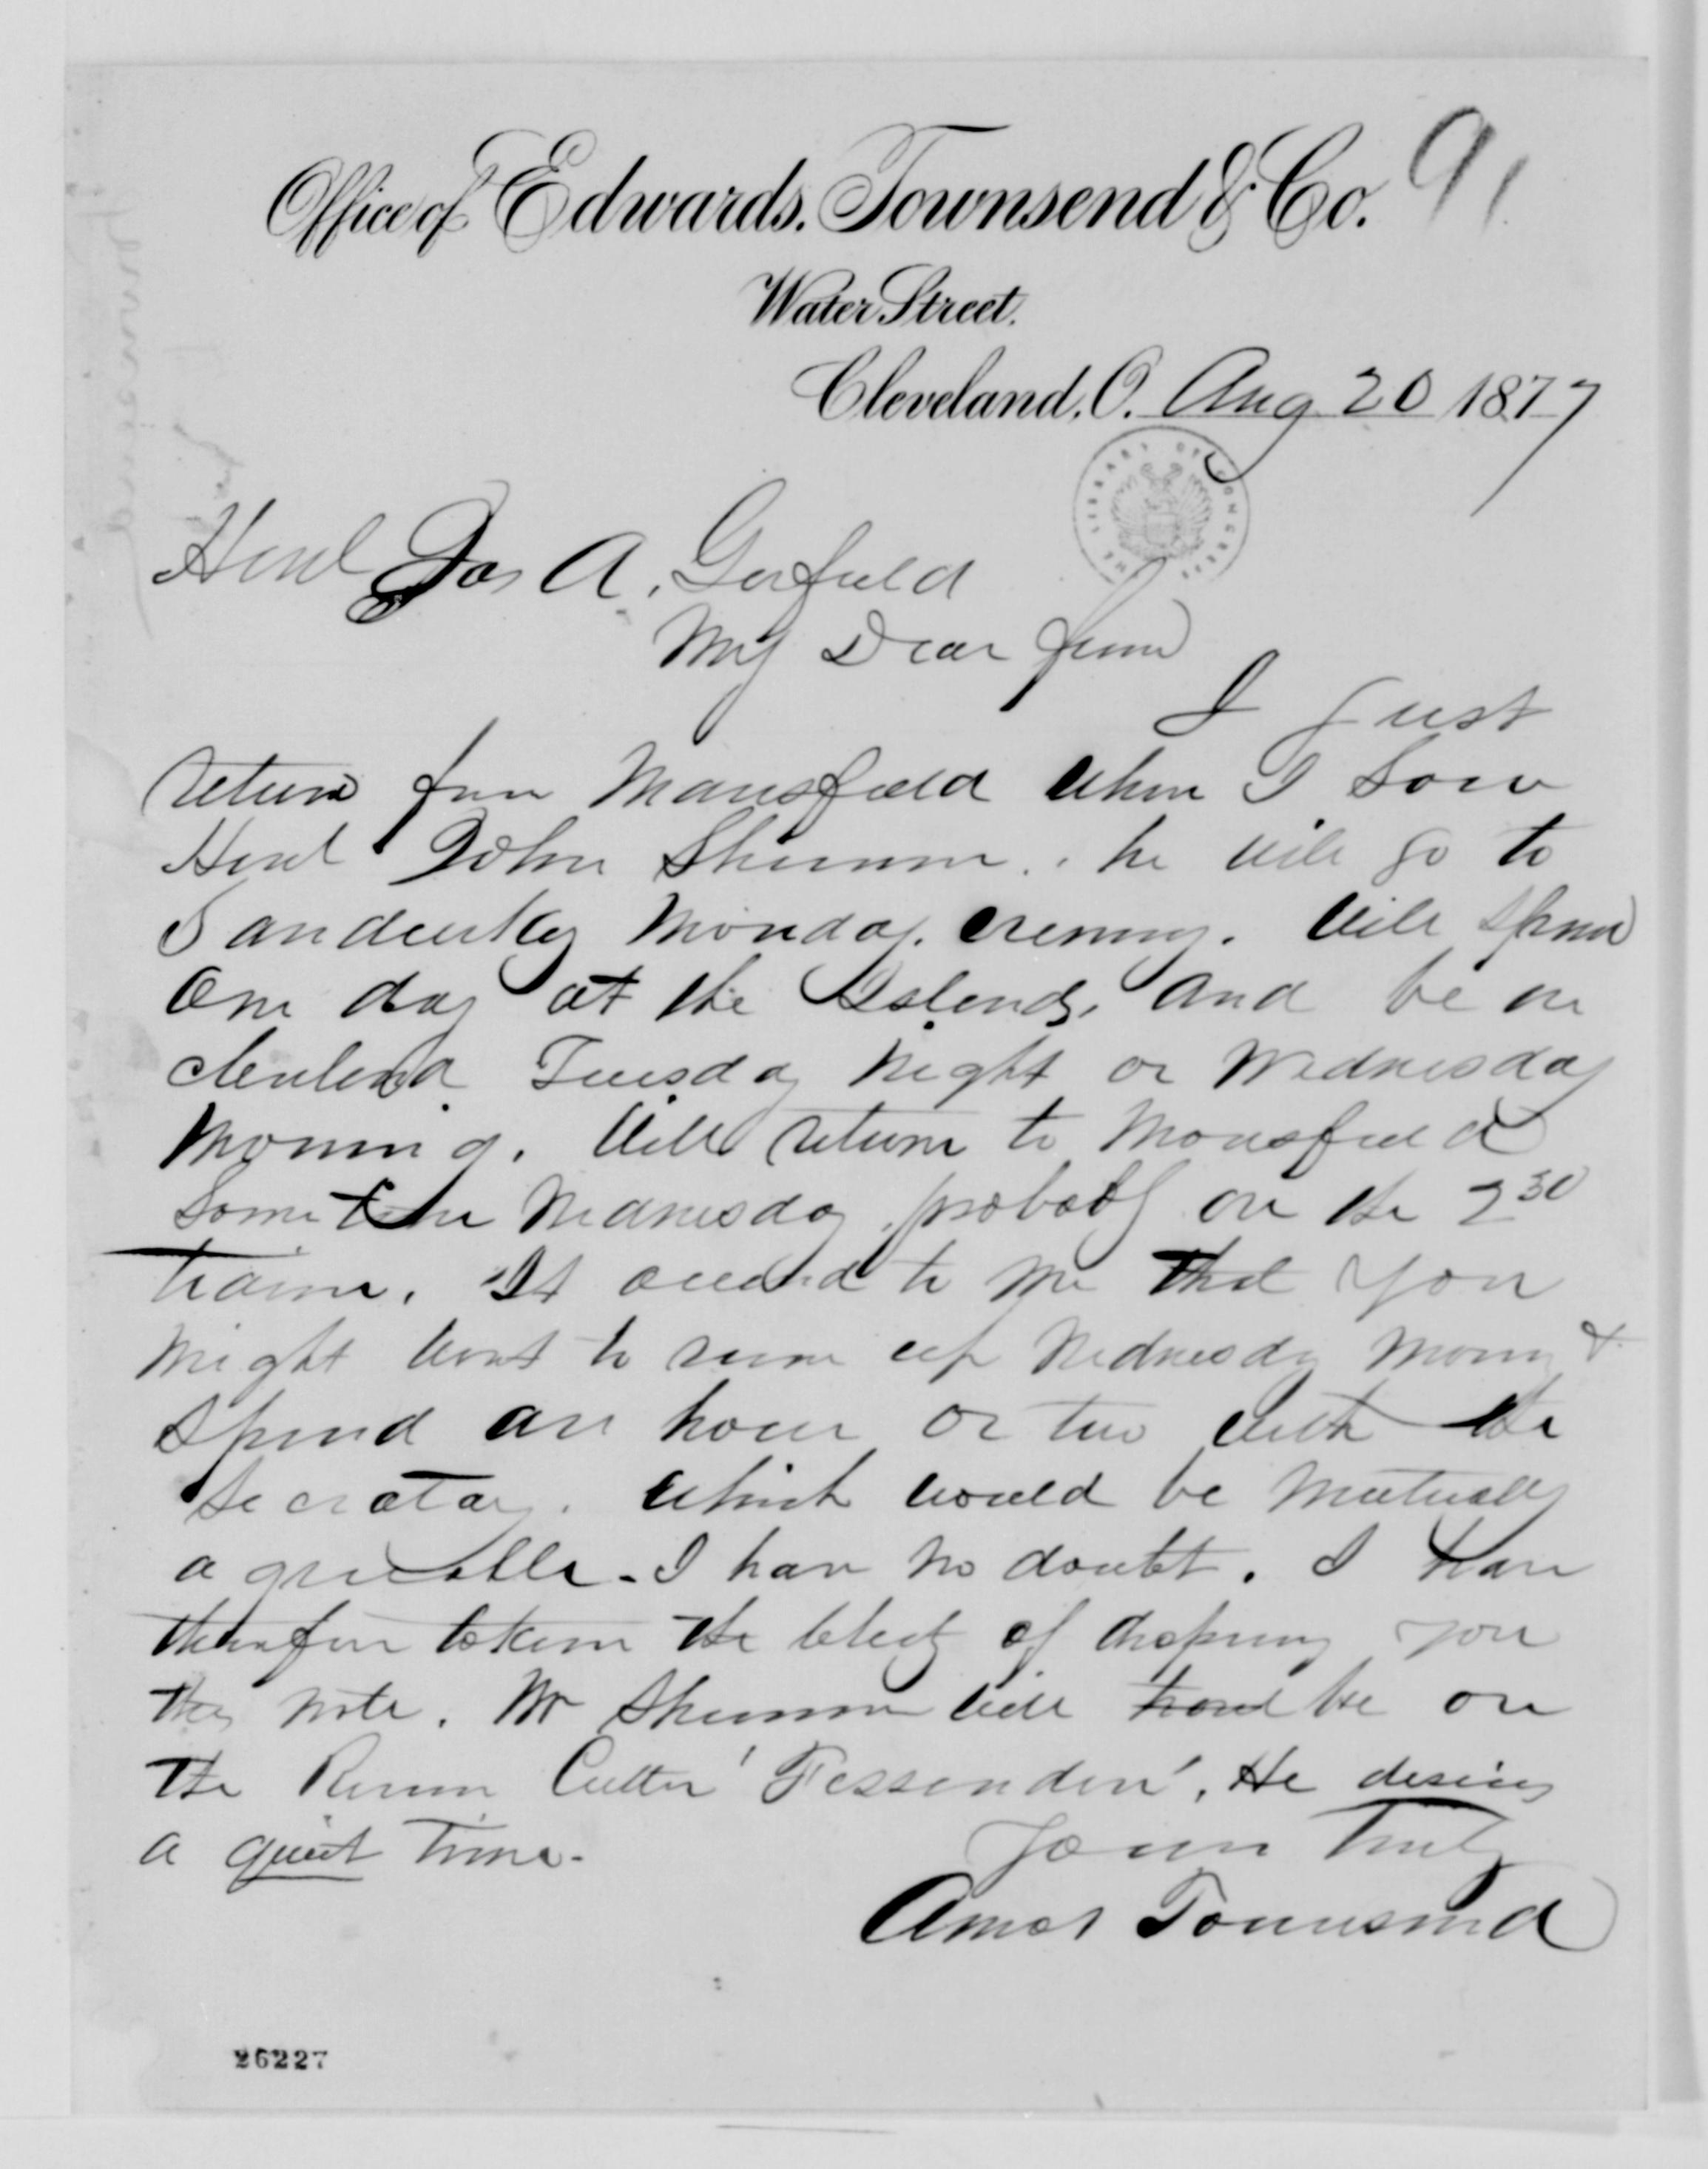 Office of Edwards, Townsend & Co. 91
Water Street.
Cleveland, O. Aug 20 1877
THE LIBRARY OF CONGRESS
Honl Jas A. Garfield
My Dear friend
I just
return from Mansfield where I saw
Honl John Sherman. he will go to
Sandusky Monday evening. Will spend
One day at the Islands, and be in
Cleveland Tuesday night or Wednesday
Morning. Will return to Mansfield
Sometime Wednesday, probably on the 2 30
train. It occurred to me that you
might want to run up Wednesday Morng &
spend an hour or two with the
Secretary. Which would be mutually
agreeable - I have no doubt. I have
therefore taken the liberty of dropping you
this note. Mr Sherman will be on
the Revenue Cutter 'Fessenden'. He desires
a quiet time.
Yours Truly
Amos Townsend
26227